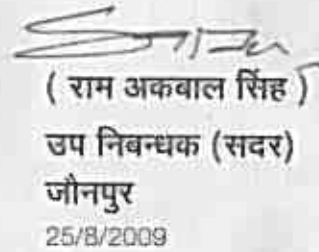 ( राम अकबाल सिंह )
उप निबन्धक (सदर)
जौनपुर
25/8/2009